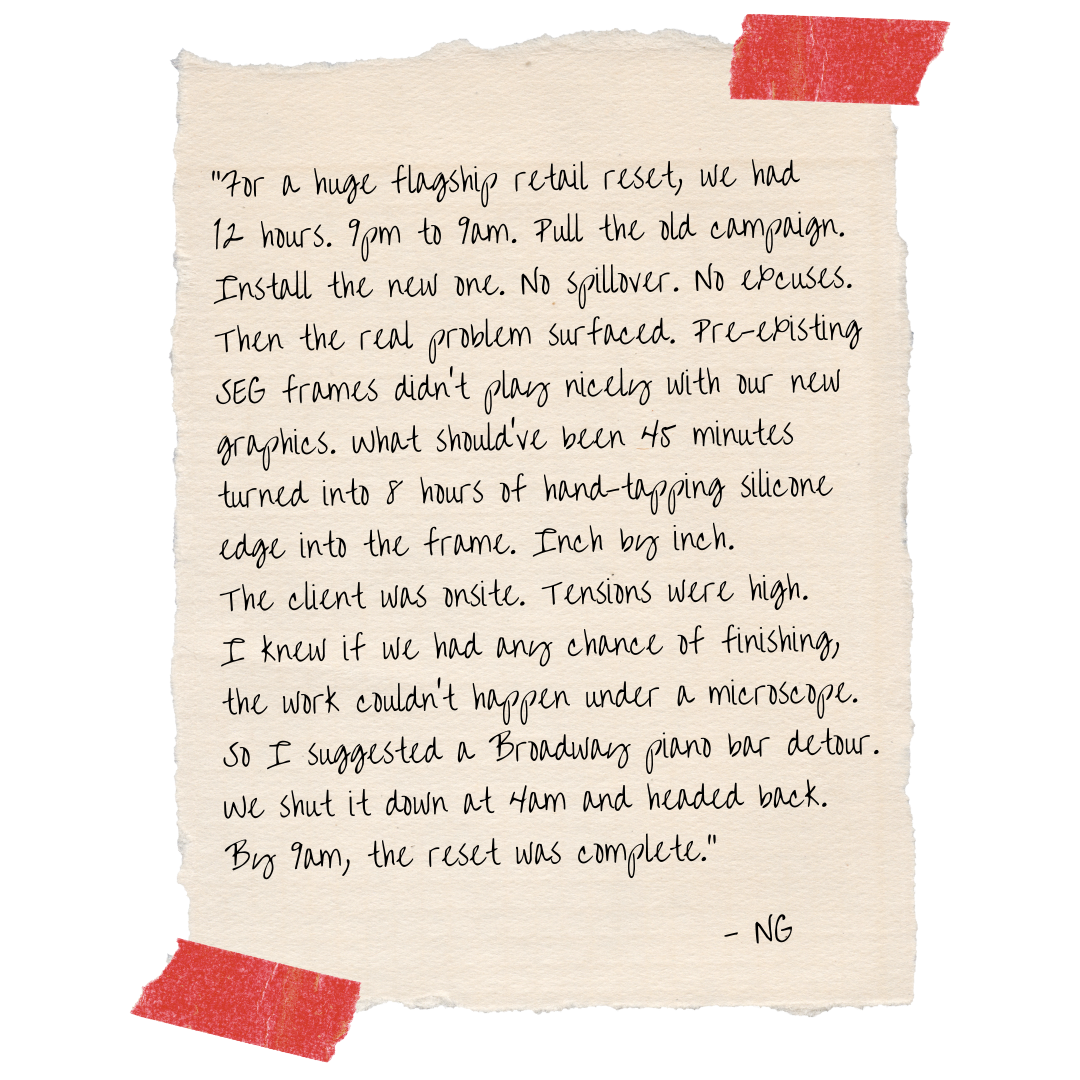 "For a huge flagship retail reset, we had
12 hours. 9pm to 9am. Pull the old campaign.
Install the new one. No spillover. No excuses.
Then the real problem surfaced. Pre-existing
SEG frames didn't play nicely with our new
graphics. What should've been 45 minutes
turned into 8 hours of hand-tapping silicone
edge into the frame. Inch by inch.
The client was onsite. Tensions were high.
I knew if we had any chance of finishing,
the work couldn't happen under a microscope.
So I suggested a Broadway piano bar detour.
We shut it down at 4am and headed back.
By 9am, the reset was complete."
- NG